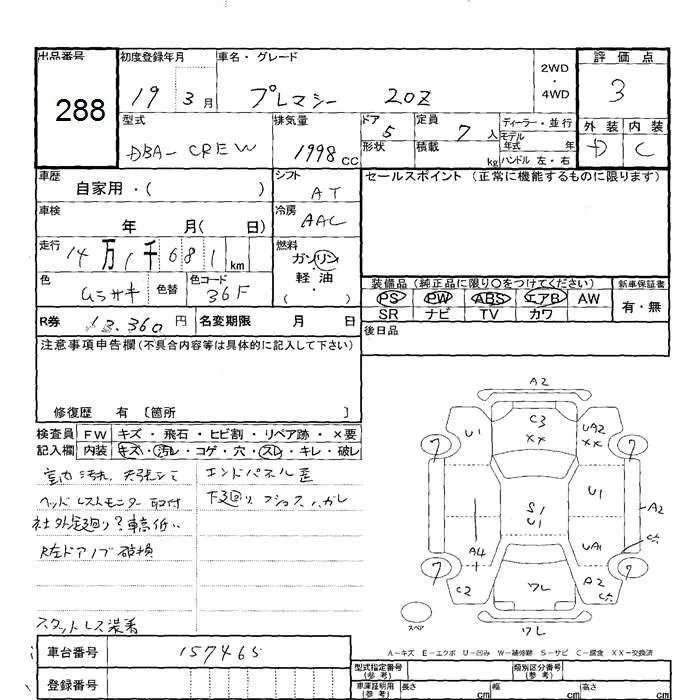 出品番号 288
初度登録年月 19 3月
車名・グレード プレマシー 20Z
2WD・4WD
評価点 3
型式 DBA-CREW
排気量 1998 cc
ドア 5 形状
定員 7 人 積載 kg
ディーラー・並行
モデル年式 年
ハンドル 左・右
外装 D 内装 C
車歴 自家用・( )
シフト AT
セールスポイント (正常に機能するものに限ります)
車検 年 月( 日)
冷房 AAC
走行 14万1千681km
燃料 ガソリン・軽油・( )
色 ムラサキ 色替 色コード 36F
装備品 (純正品に限り○をつけてください) 新車保証書
PS PW ABS エアB AW 有・無
SR ナビ TV カワ
R券 13.360円 名変期限 月 日
後日品
注意事項申告欄(不具合内容等は具体的に記入して下さい)
修復歴 有 〔箇所 〕
検査員記入欄 FW キズ・飛石・ヒビ割・リペア跡・×要
内装 キズ・汚れ・コゲ・穴・スレ・キレ・破レ
室内汚れ、天張シミ エンドパネル歪
ヘッドレストモニター取付 下廻り
社外足廻り?車高低い
R左ドアノブ破損
スタットレス装着
A2
U1 C3 XX UA2 XX
7 7
S1 U1 U1 A2
A4 UA1
7 7
C2 ワレ A2
スペア ワレ
A-キズ E-エクボ U-凹み W-補修跡 S-サビ C-腐食 XX-交換済
車台番号 157465
登録番号
型式指定番号(参考) 類別区分番号(参考)
車庫証明用(参考) 長さ cm 幅 cm 高さ cm